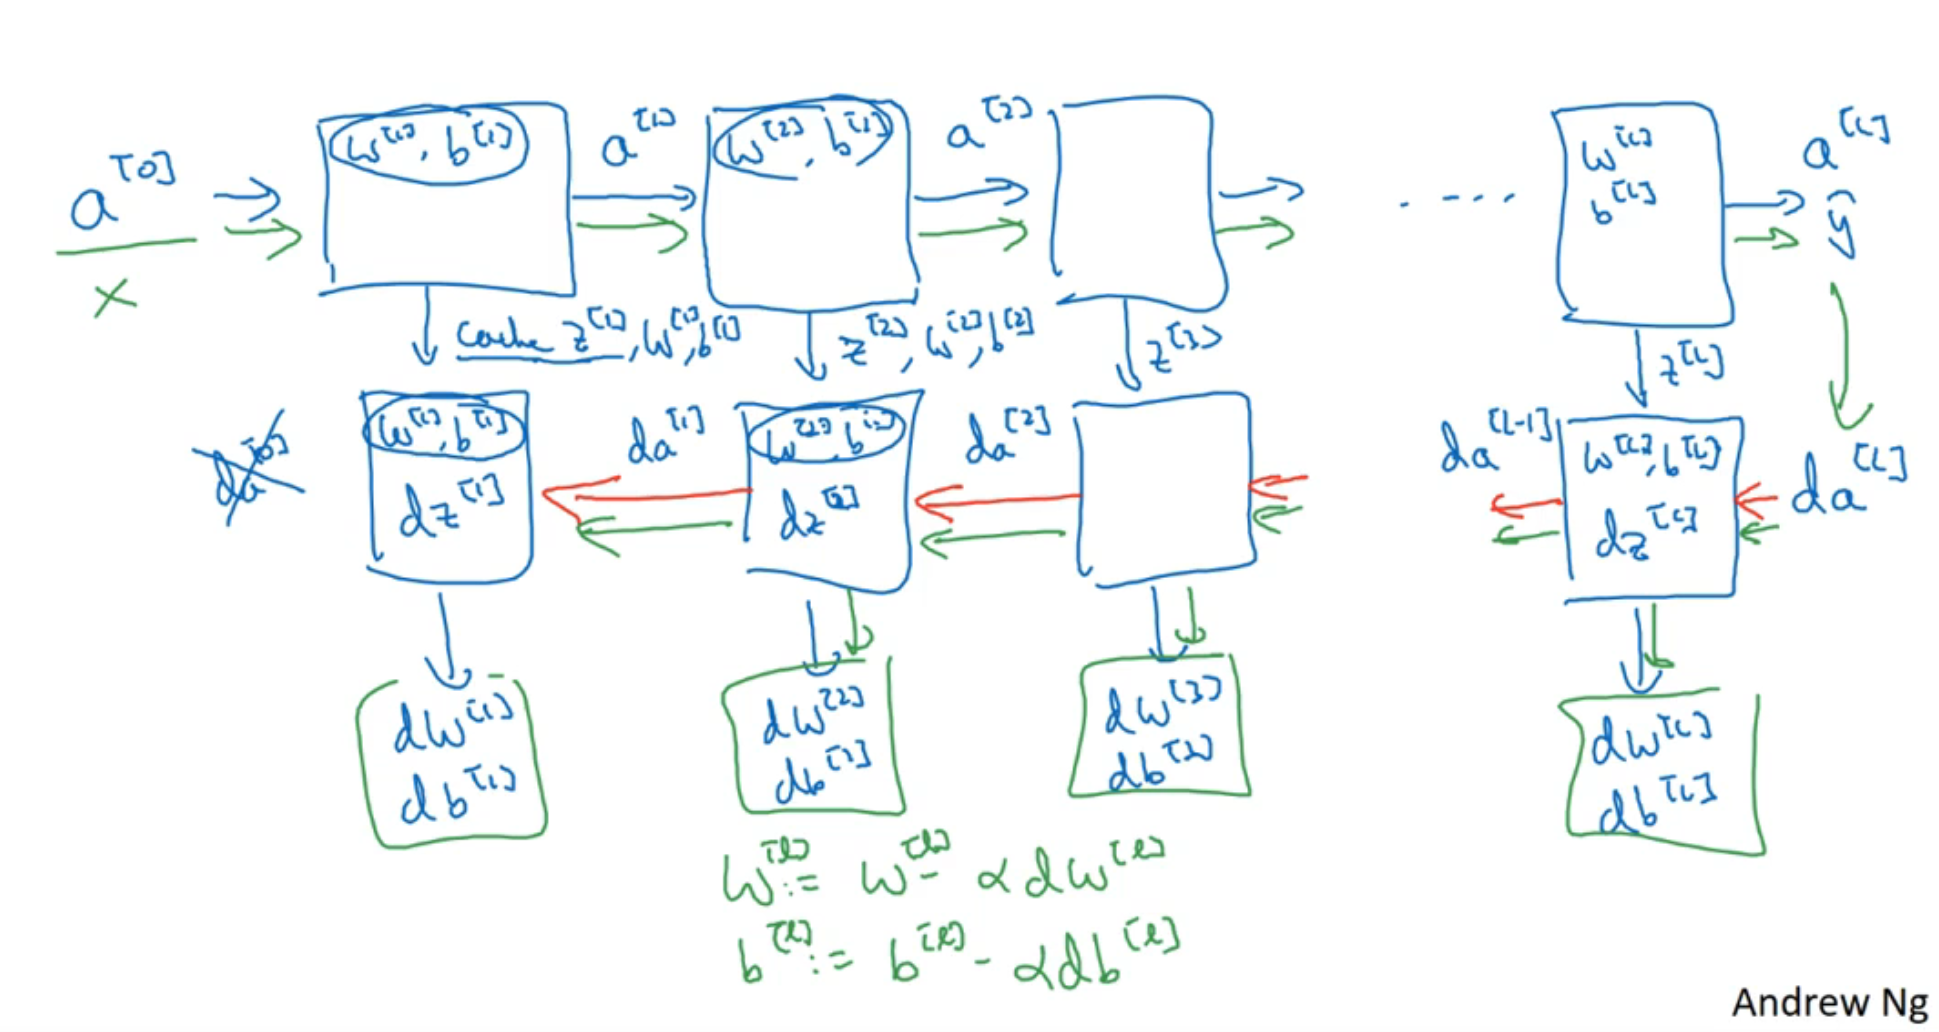 a^[0]
x
w^[1], b^[1]
a^[1]
w^[2], b^[1]
a^[2]
w^[L]
b^[L]
a^[L]
ŷ
cache z^[1], w^[1], b^[1]
z^[2], w^[2], b^[2]
z^[3]
z^[L]
da^[0]
w^[1], b^[1]
dz^[1]
da^[1]
dz^[2]
da^[2]
da^[L-1]
w^[L], b^[L]
dz^[L]
da^[L]
dw^[1]
db^[1]
dw^[2]
dw^[3]
dw^[L]
db^[L]
w^[l] := w^[l] - α dw^[l]
b^[l] := b^[l] - α db^[l]
Andrew Ng